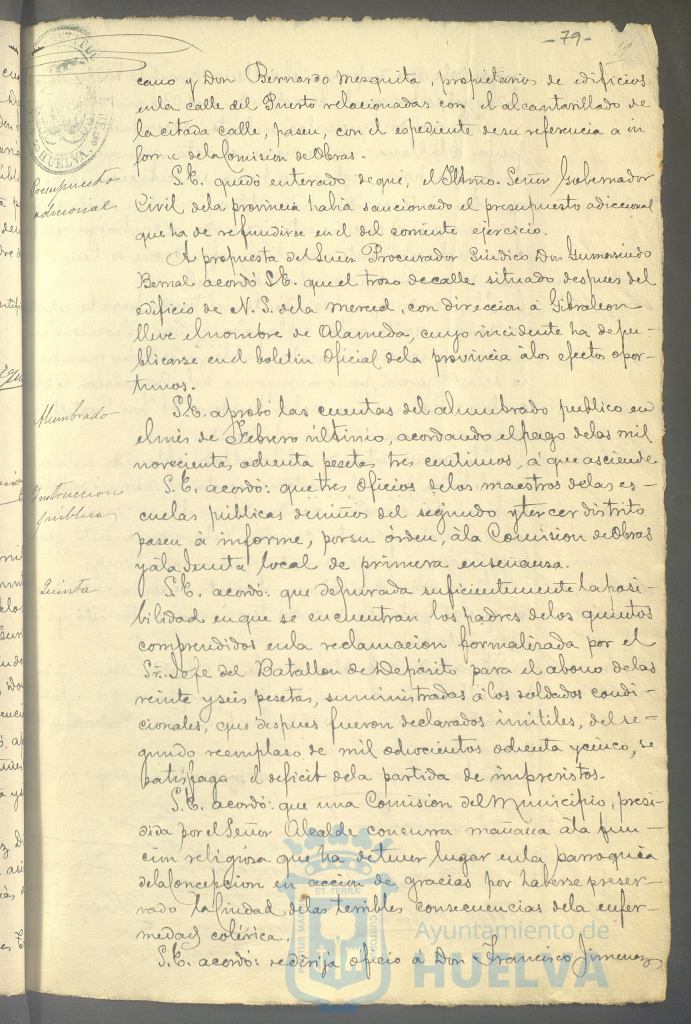 -79-
cano y Don Bernardo Mezquita, propietarios de edificios
en la calle del Puerto relacionadas con el alcantarillado de
la citada calle, pasen, con el espediente de su referencia a in
forme de la Comision de Obras.
Presupuesto
adicional
S.E. quedó enterado de qué, el Iltmo. Señor Gobernador
Civil de la provincia habia sancionado el presupuesto adiccional
que ha de refundirse en el del corriente ejercicio.
A propuesta del Señor Procurador Síndico Don Gumersindo
Bernal acordó S.E. que el trozo de calle situado despues del
edificio de N. S. de la Merced, con direccion á Gibraleon
lleve el nombre de Alameda, cuyo incidente ha de pu-
blicarse en el boletin Oficial de la provincia á los efectos opor-
tunos.
Alumbrado
S.E. aprobó las cuentas del alumbrado publico en
el mes de Febrero último, acordando el pago de las mil
novecientas ochenta pesetas tres centimos, á que asciende.
Instruccion
pública
S.E. acordó: que tres Oficios de los maestros de las es-
cuelas públicas de niños del segundo y tercer distrito
pasen á informe, por su órden, á la Comision de Obras
y á la Junta local de primera enseñanza.
Quinta
S.E. acordó: que depurada suficientemente la posi-
bilidad en que se encuentran los padres de los quintos
comprendidos en la reclamacion formalizada por el
Sr. Jefe del Batallon de Depósito para el abono de las
veinte y seis pesetas, suministradas á los soldados condi-
cionales, que despues fueron declarados inútiles, del se-
gundo reemplazo de mil ochocientos ochenta y cinco, se
satisfaga el deficit de la partida de imprevistos.
S.E. acordó: que una Comision del Municipio, presi-
dida por el Señor Alcalde concurra mañana á la fun-
cion religiosa que ha de tener lugar en la parroquia
de la Concepcion en accion de gracias por haberse preser-
vado la Ciudad de las terribles consecuencias de la enfer-
medad colérica.
S.E. acordó: se dirija oficio á Don Francisco Jimenez
HUELVA
Ayuntamiento de
HUELVA